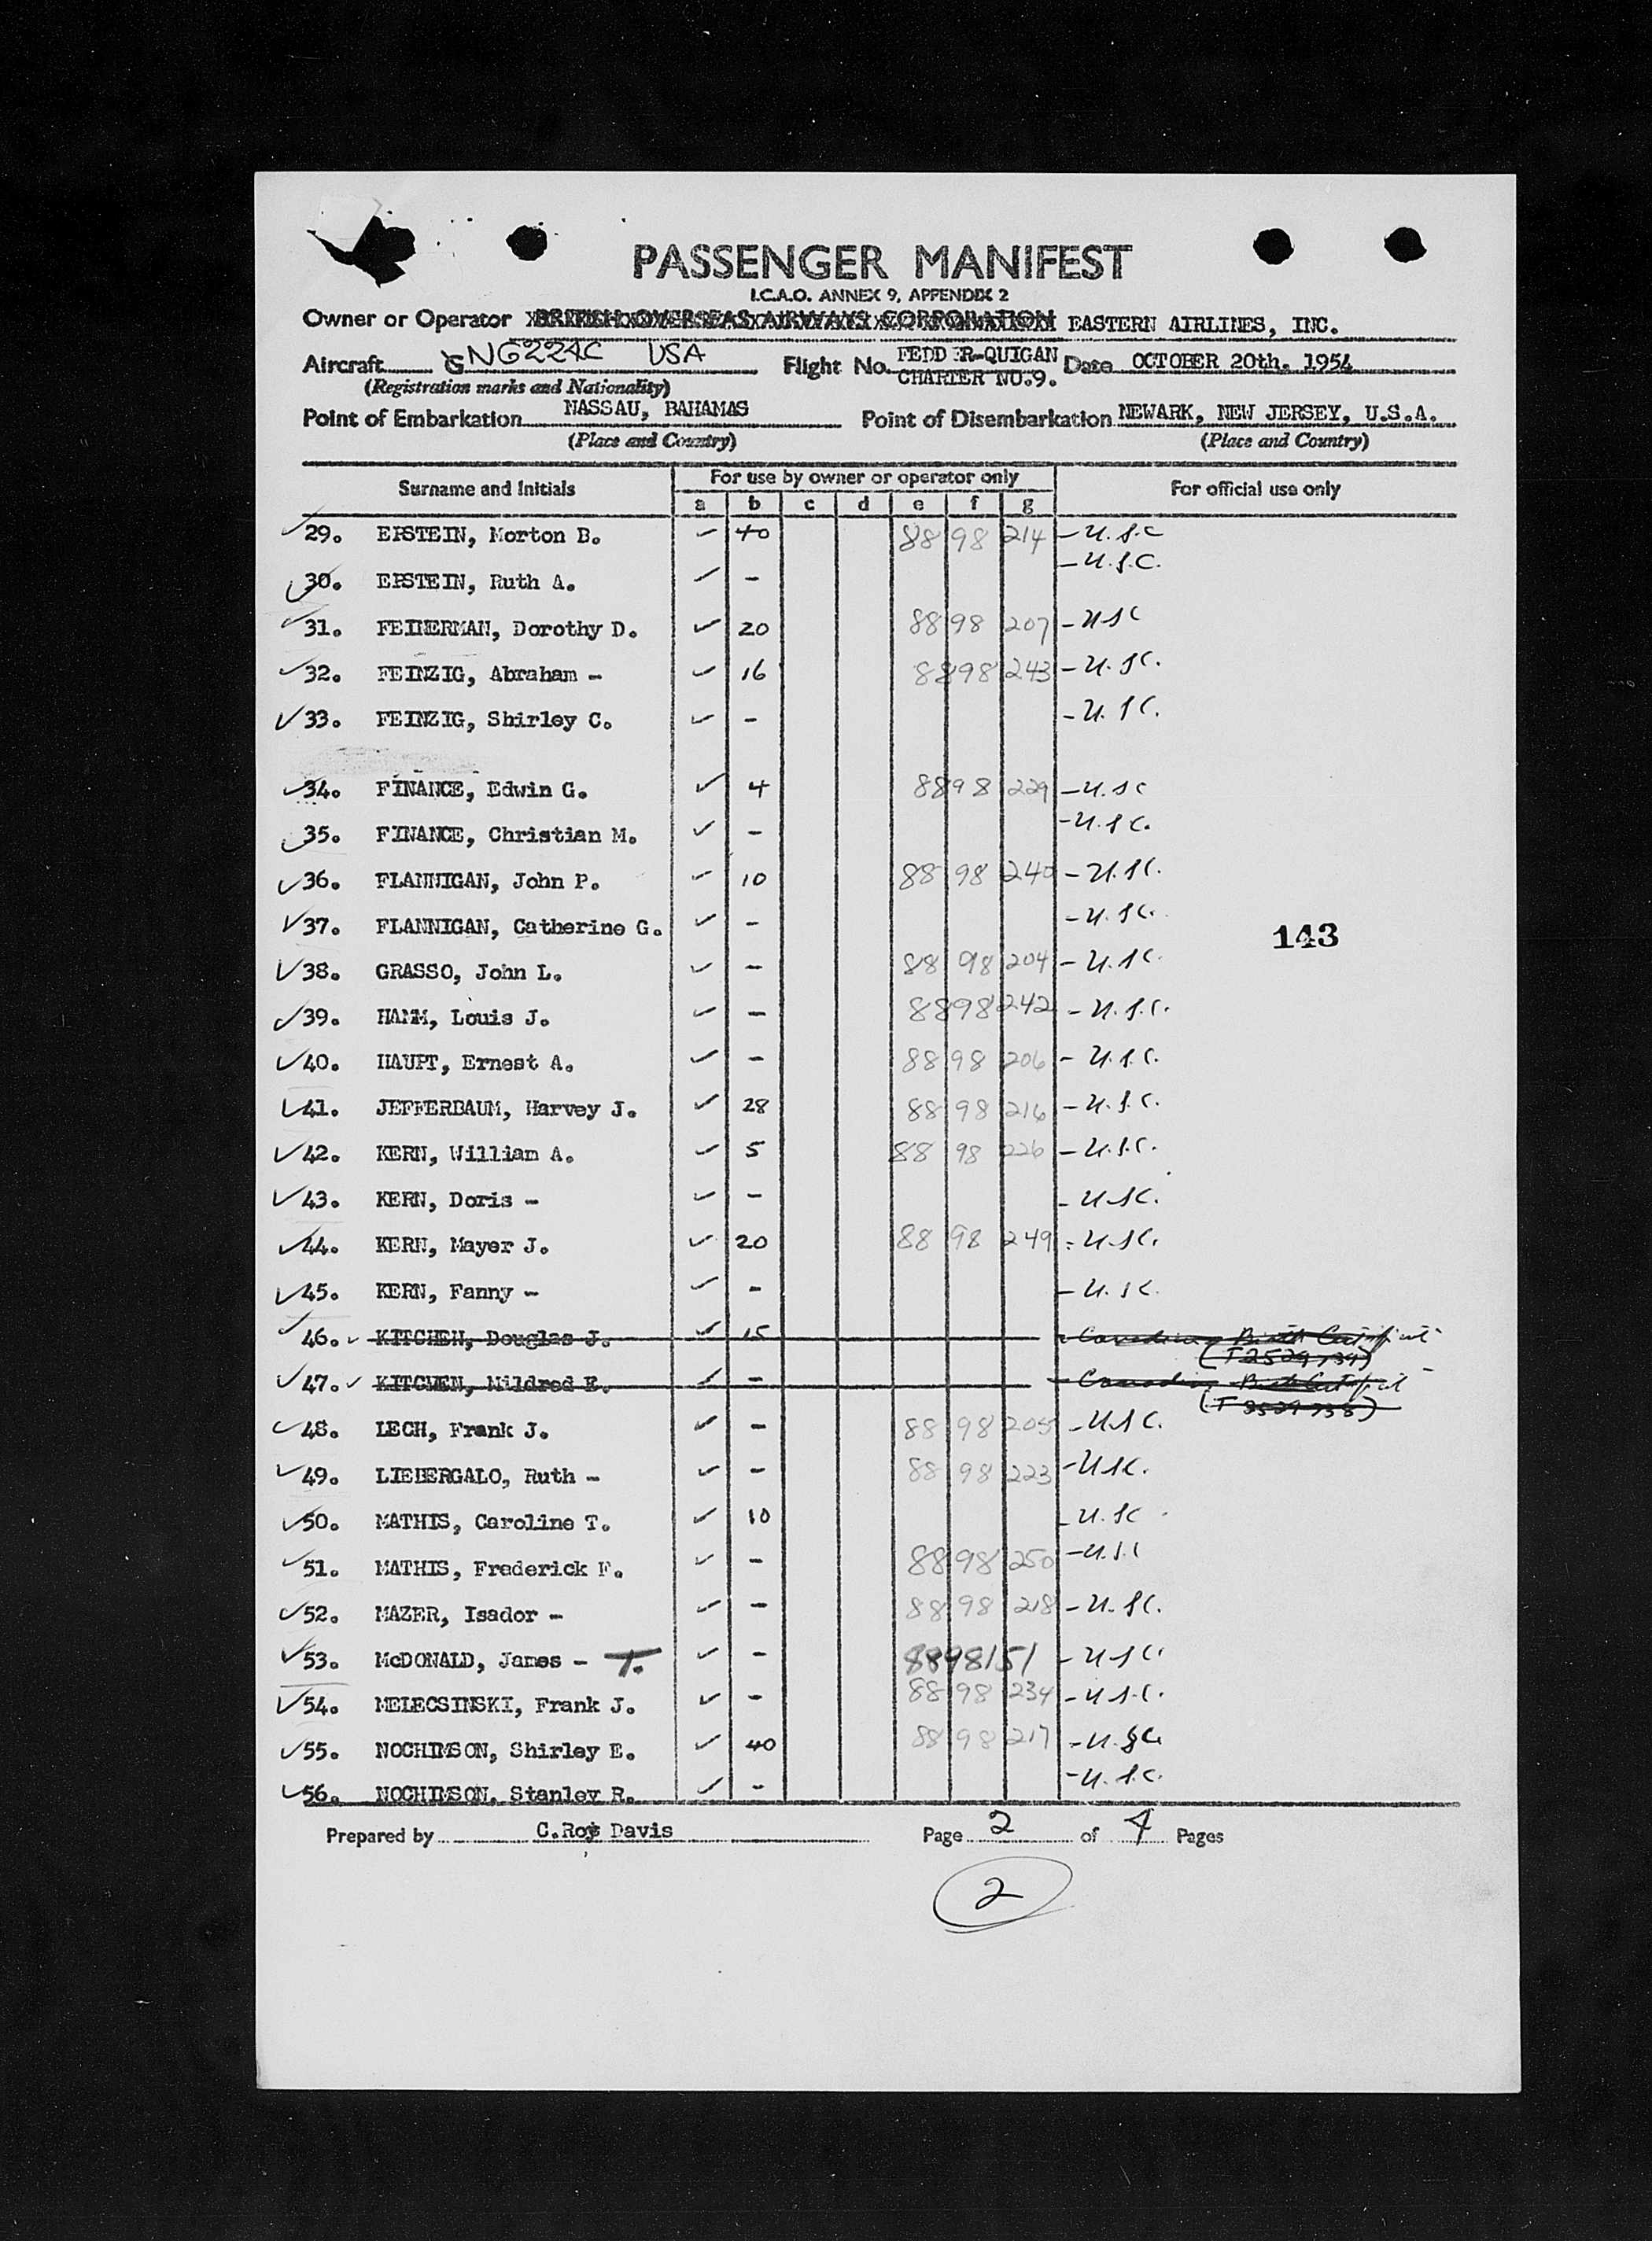 PASSENGER MANIFEST
I.C.A.O. ANNEX 9, APPENDIX 2
Owner or Operator BRITISH OVERSEAS AIRWAYS CORPORATION EASTERN AIRLINES, INC.
Aircraft G N6224C USA Flight No. FEDDER-QUIGAN CHARTER NO.9. Date OCTOBER 20th. 1954
(Registration marks and Nationality)
Point of Embarkation NASSAU, BAHAMAS Point of Disembarkation NEWARK, NEW JERSEY, U.S.A.
(Place and Country) (Place and Country)
Surname and Initials For use by owner or operator only For official use only
a b c d e f g
29. EPSTEIN, Morton B. ✓ 40 88 98 214 - U.S.C
30. EPSTEIN, Ruth A. ✓ - - U.S.C.
31. FEINERMAN, Dorothy D. ✓ 20 88 98 207 - USC
32. FEINZIG, Abraham - ✓ 16 88 98 243 - U.SC.
33. FEINZIG, Shirley C. ✓ - - U.SC.
34. FINANCE, Edwin G. ✓ 4 88 98 229 - U.SC
35. FINANCE, Christian M. ✓ - - U.SC.
36. FLANNIGAN, John P. ✓ 10 88 98 240 - U.SC.
37. FLANNIGAN, Catherine G. ✓ - - U.SC.
143
38. GRASSO, John L. ✓ - 88 98 204 - U.SC.
39. HAMM, Louis J. ✓ - 88 98 242 - U.S.C.
40. HAUPT, Ernest A. ✓ - 88 98 206 - U.S.C.
41. JEFFERBAUM, Harvey J. ✓ 28 88 98 216 - U.S.C.
42. KERN, William A. ✓ 5 88 98 226 - U.S.C.
43. KERN, Doris - ✓ - - USC.
44. KERN, Mayer J. ✓ 20 88 98 249 - U.SC.
45. KERN, Fanny - ✓ - - U.SC.
46. KITCHEN, Douglas J. ✓ 15 - Canadian Birth Certificate
47. KITCHEN, Mildred E. ✓ - - Canadian Birth Certificate
48. LECH, Frank J. ✓ - 88 98 205 - USC.
49. LIEBERGALO, Ruth - ✓ - 88 98 223 - USC.
50. MATHIS, Caroline T. ✓ 10 - U.SC
51. MATHIS, Frederick F. ✓ - 88 98 250 - U.S.C
52. MAZER, Isador - ✓ - 88 98 218 - U.SC.
53. McDONALD, James - T. ✓ - 8898151 - USC
54. MELECSINSKI, Frank J. ✓ - 88 98 234 - U.S.C.
55. NOCHIMSON, Shirley E. ✓ 40 88 98 217 - U.SC.
56. NOCHIMSON, Stanley R. ✓ - - U.S.C.
Prepared by C.Roy Davis Page 2 of 4 Pages
2